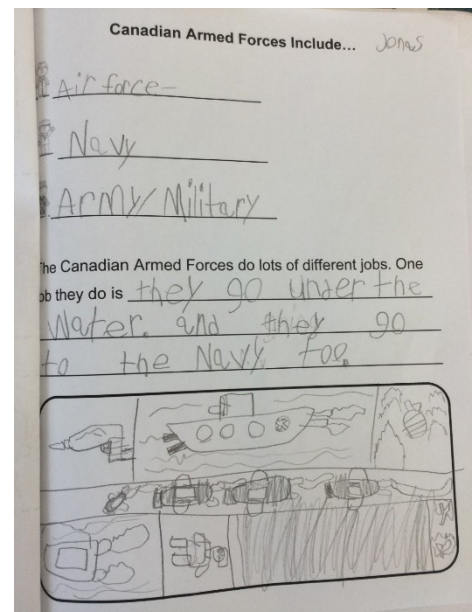 Canadian Armed Forces Include... Jonas
Air force
Navy
Army/Military
The Canadian Armed Forces do lots of different jobs. One
job they do is they go under the
water. and they go
to the Navy too.